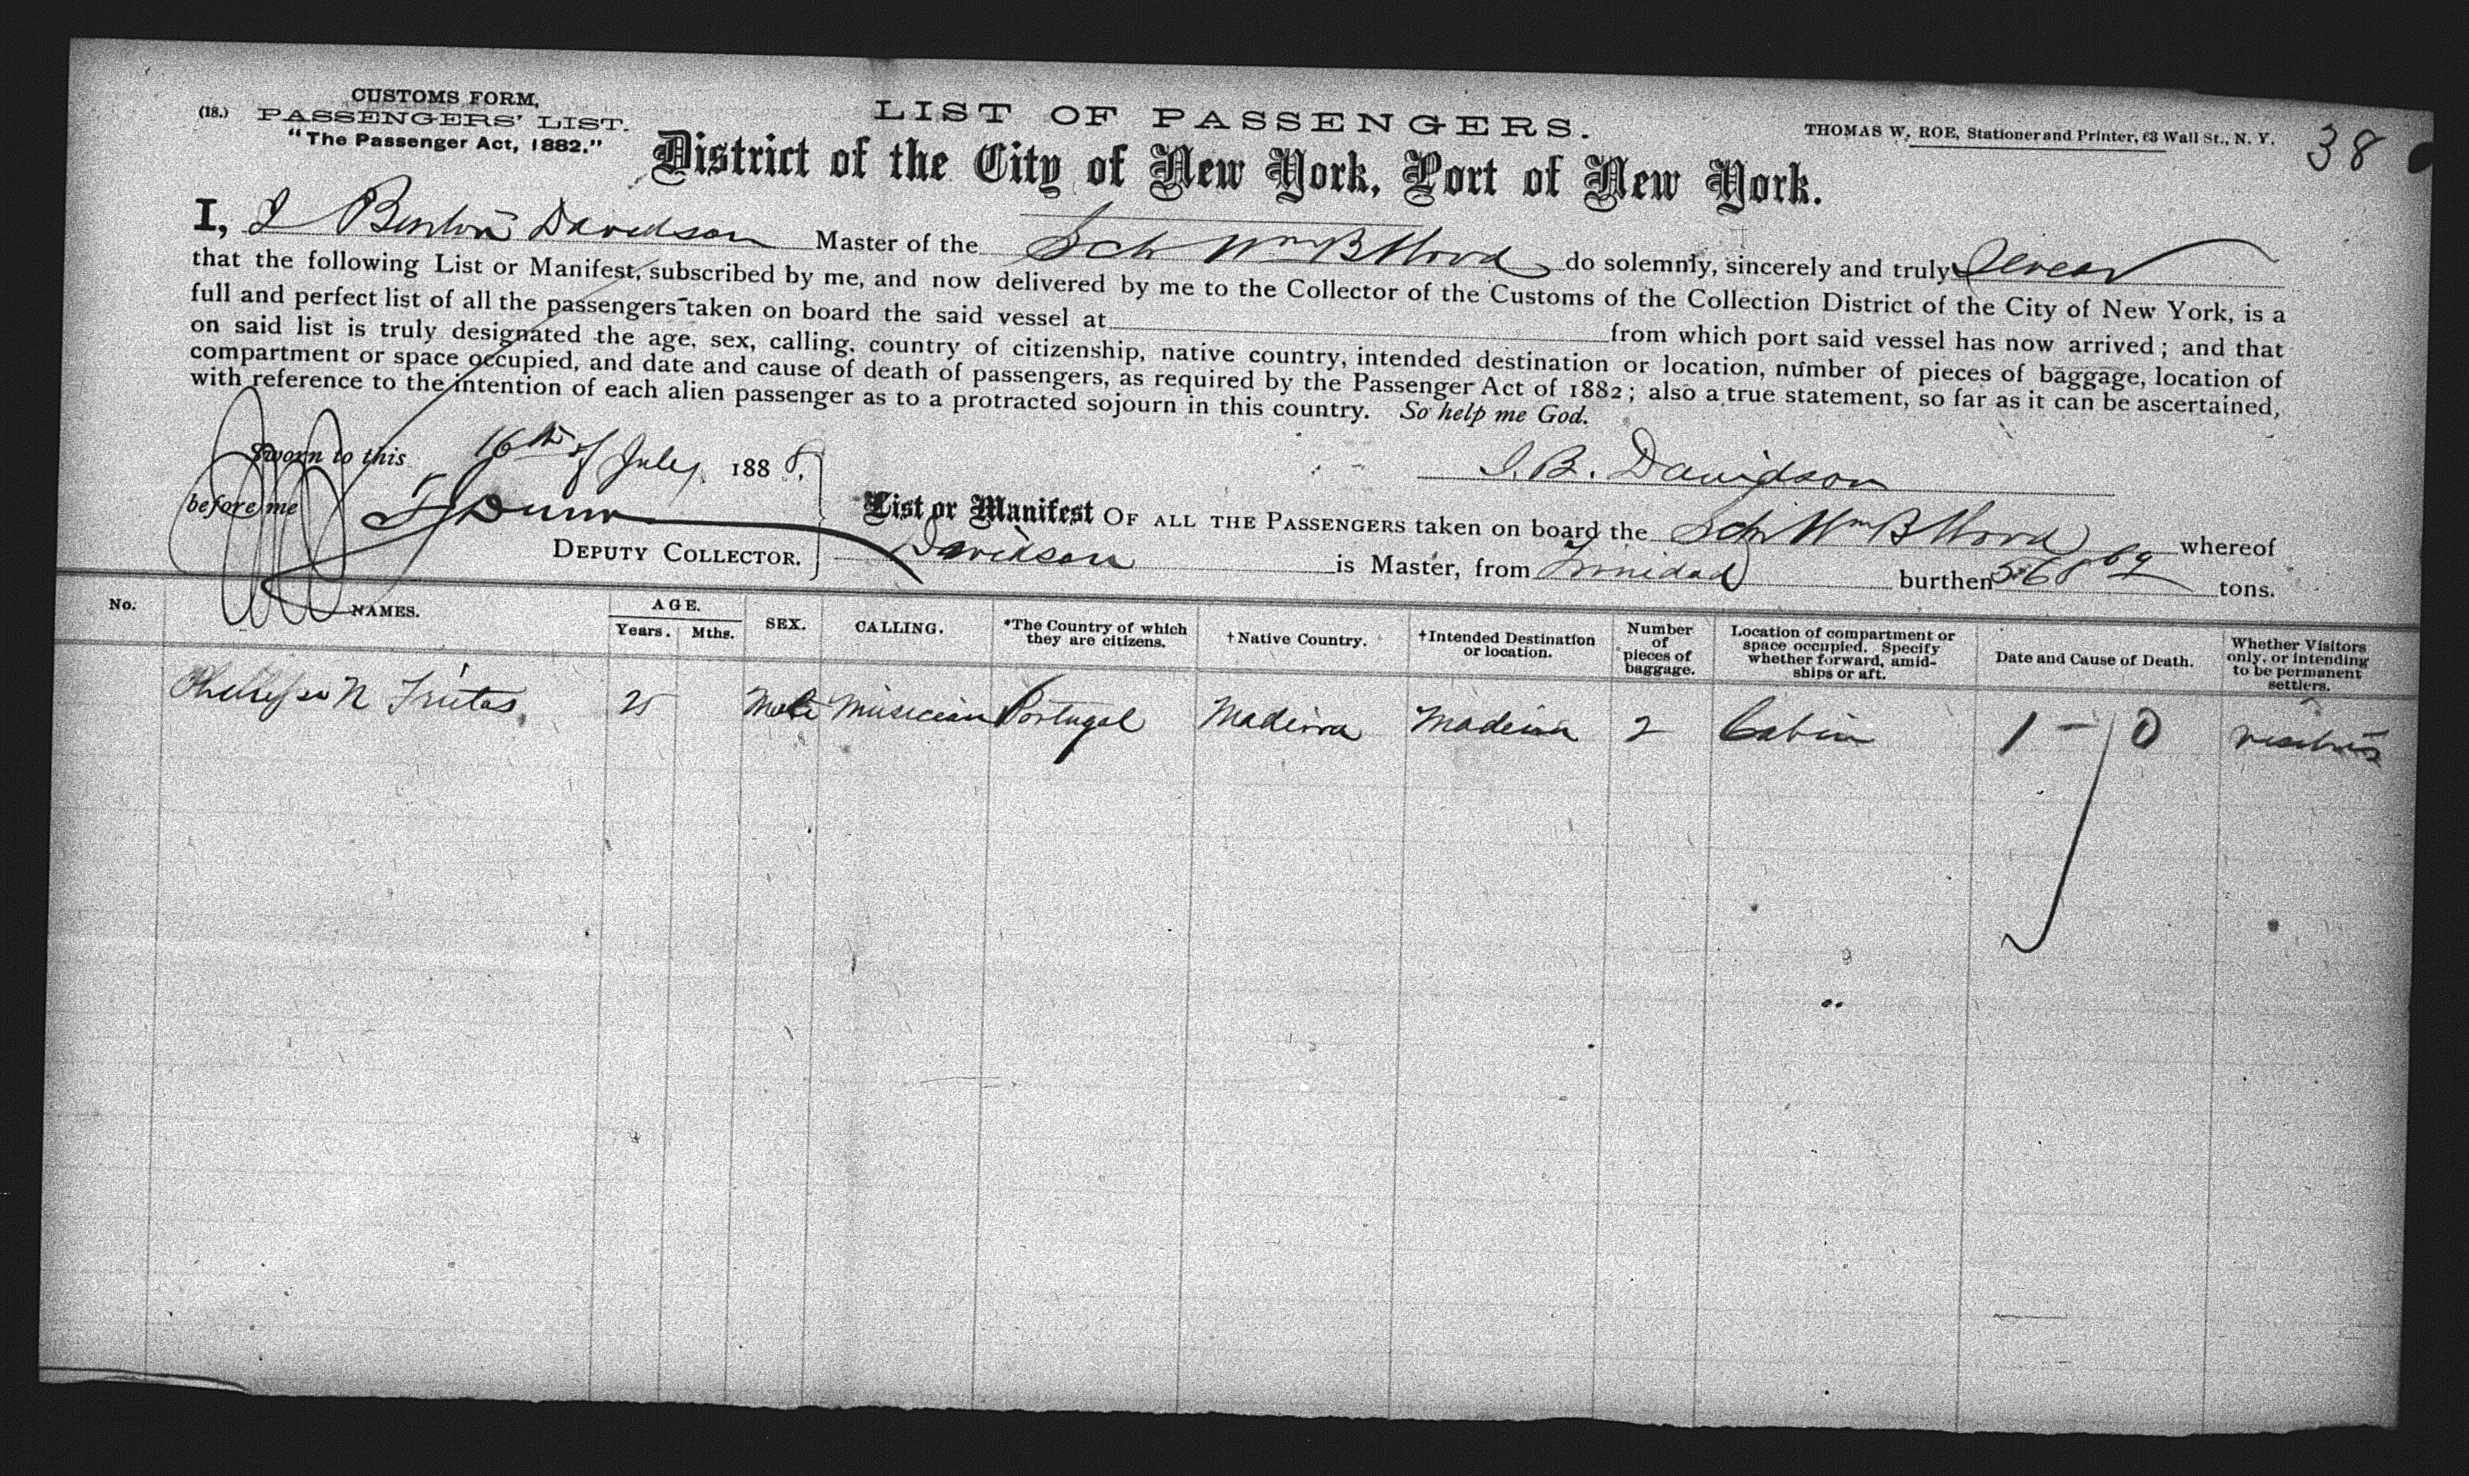 CUSTOMS FORM,
(18.) PASSENGERS' LIST.
"The Passenger Act, 1882."
LIST OF PASSENGERS.
THOMAS W. ROE, Stationer and Printer, 63 Wall St., N. Y.
38
District of the City of New York, Port of New York.
I, Davidson Master of the Sch Wm B Wood do solemnly, sincerely and truly swear
that the following List or Manifest, subscribed by me, and now delivered by me to the Collector of the Customs of the Collection District of the City of New York, is a
full and perfect list of all the passengers taken on board the said vessel at from which port said vessel has now arrived; and that
on said list is truly designated the age, sex, calling, country of citizenship, native country, intended destination or location, number of pieces of baggage, location of
compartment or space occupied, and date and cause of death of passengers, as required by the Passenger Act of 1882; also a true statement, so far as it can be ascertained,
with reference to the intention of each alien passenger as to a protracted sojourn in this country. So help me God.
Sworn to this 16th of July 1888.
J. B. Davidson
before me Dunn
DEPUTY COLLECTOR.
List or Manifest OF ALL THE PASSENGERS taken on board the Sch Wm B Wood whereof
Davidson is Master, from Trinidad burthen 568 69 tons.
No. NAMES. AGE. Years. Mths. SEX. CALLING. *The Country of which they are citizens. †Native Country. †Intended Destination or location. Number of pieces of baggage. Location of compartment or space occupied. Specify whether forward, amidships or aft. Date and Cause of Death. Whether Visitors only, or intending to be permanent settlers.
N Frietas 25 Male Musician Portugal Madeira Madeira 2 Cabin 1 - 0 visitors